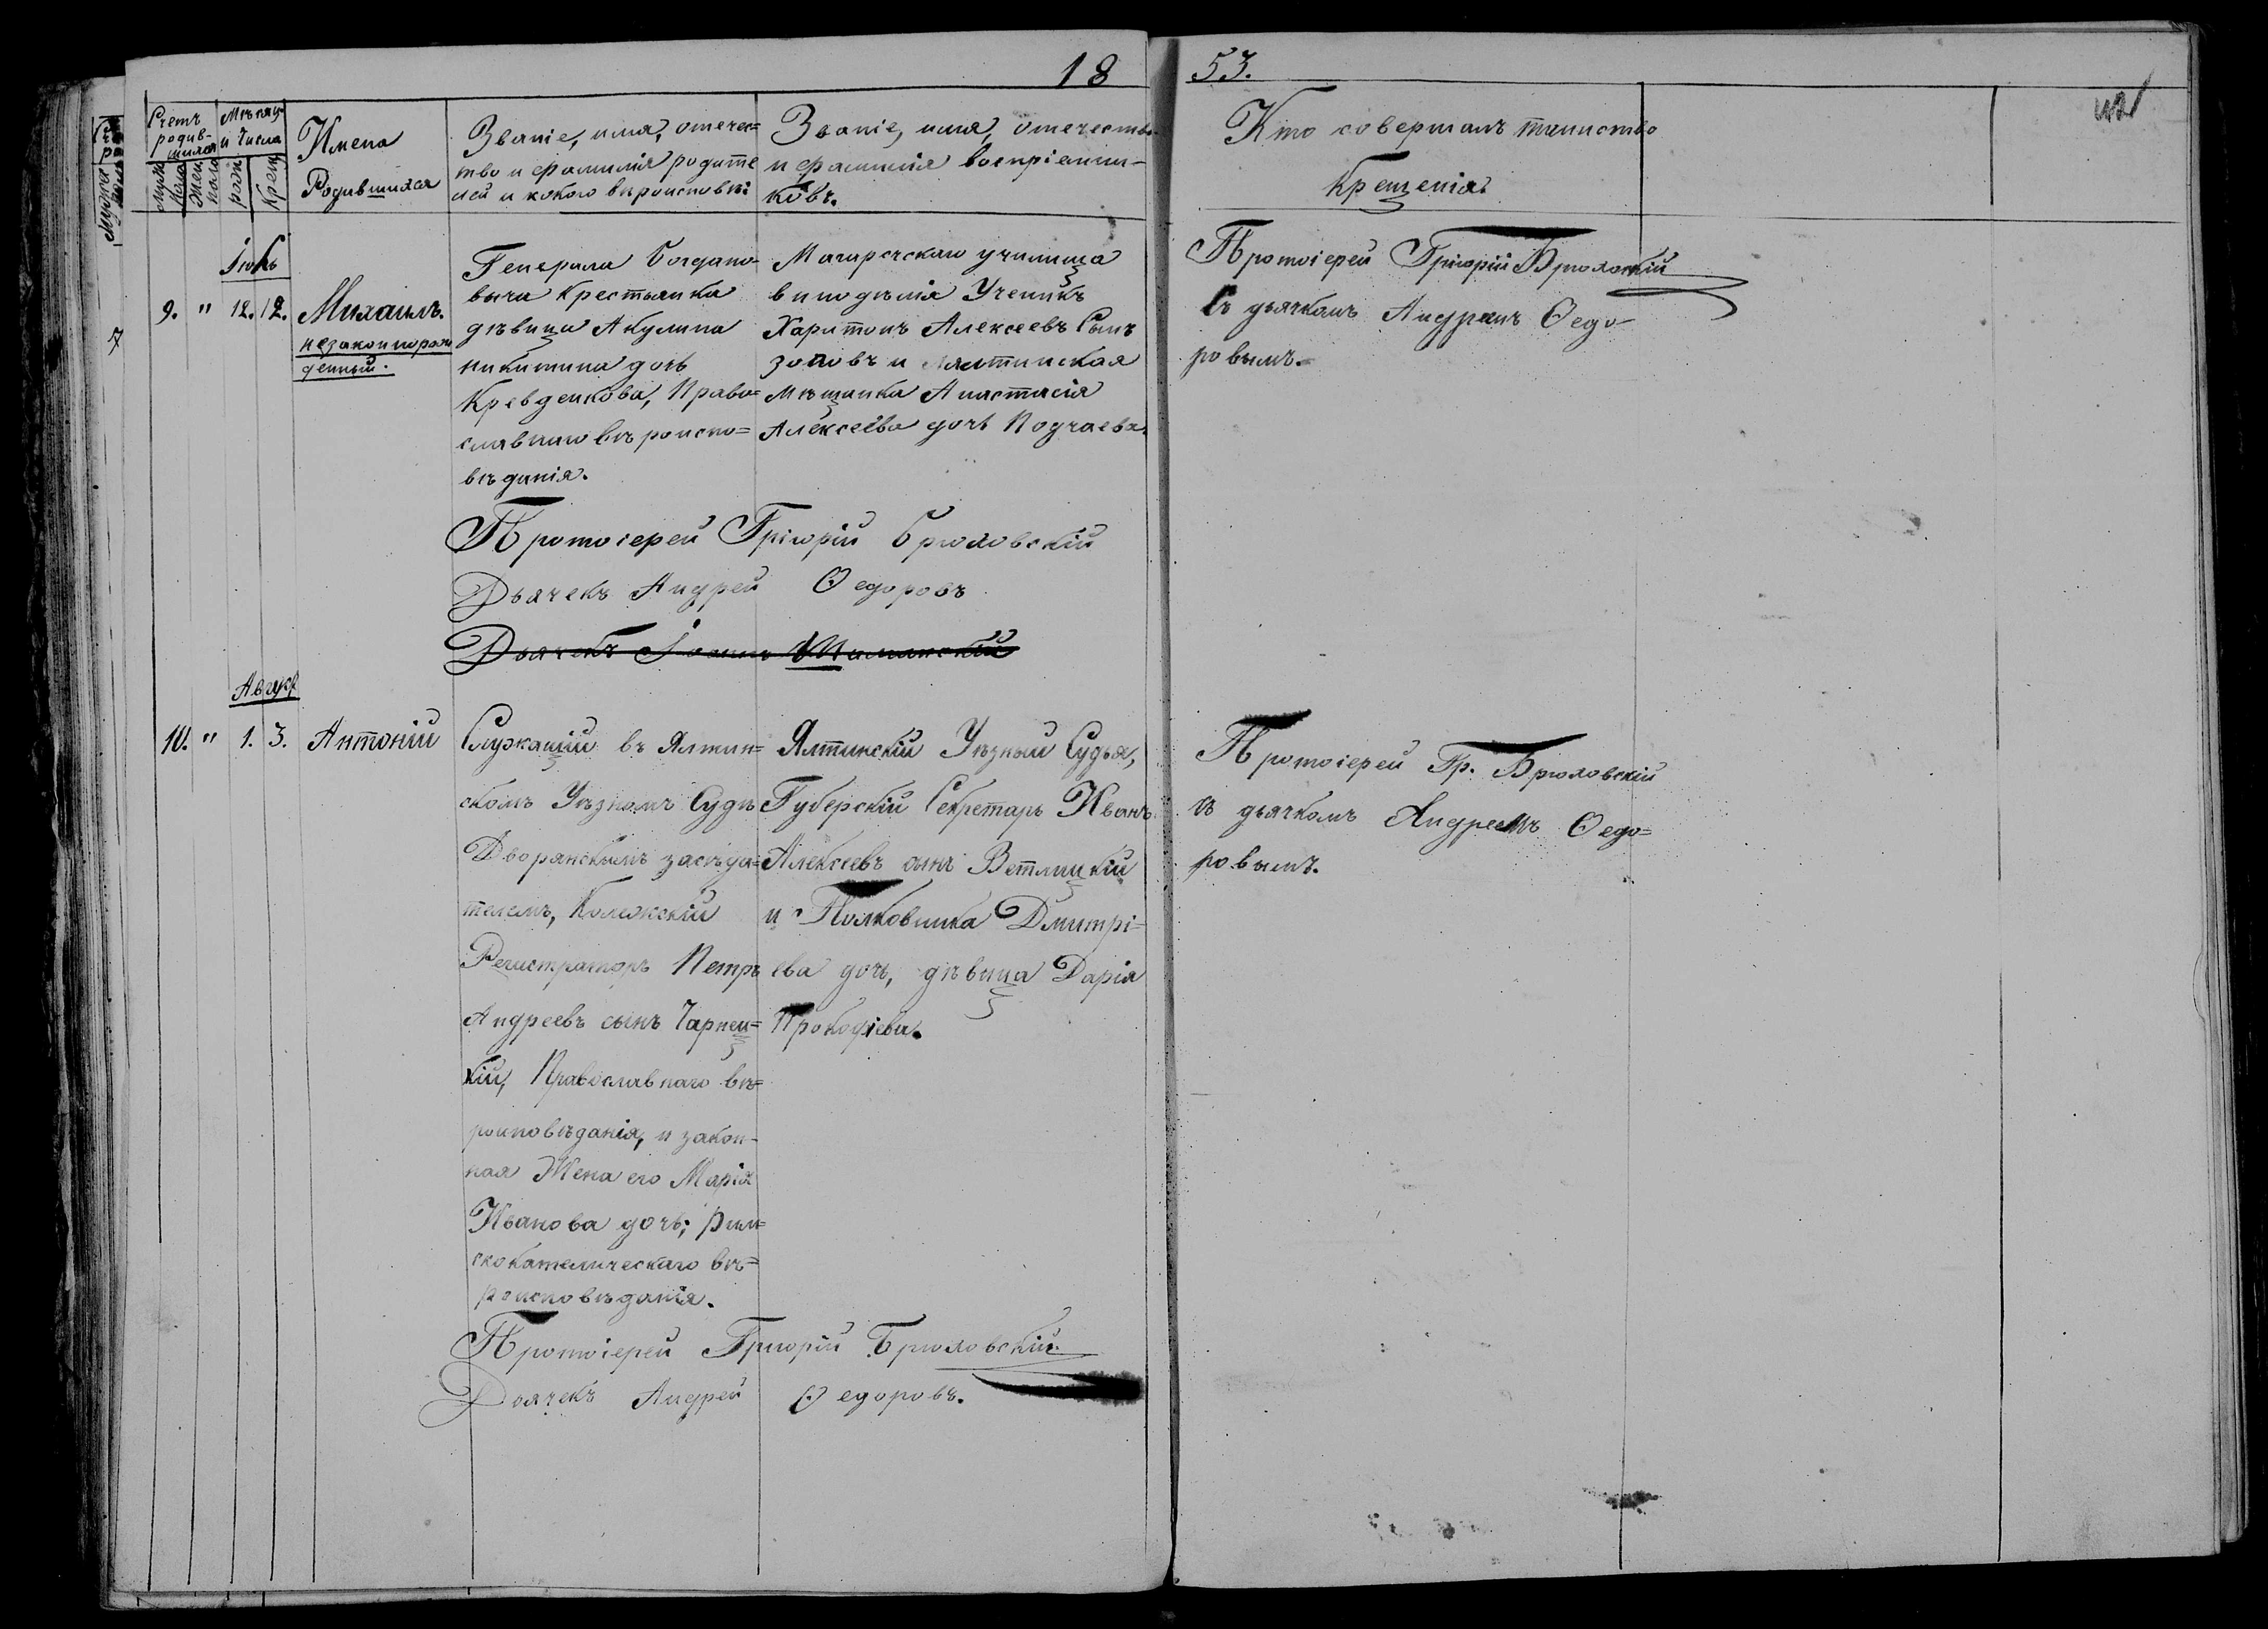 18 53.
Счетъ родив-
шихся
Мѣсяцъ
и Числа
Муж.
пола
Жен.
пола
рожд.
Крещ.
Имена
Родившихся
Званіе, имя, отечес=
тво и фамилія родите
лей и какого вѣроисповѣ:
Званіе, имя, отечество
и фамилія воспріемни-
ковъ.
Кто совершалъ таинство
Крещенія.
Іюль
9. " 12. 12.
Михаилъ.
незаконнорож
денный.
Генерала
вича Крестьянка
дѣвица Акулина
Никитина дочь
Кревденкова, Право=
славнаго вѣроиспо=
вѣданія.
Магарачскаго училища
винодѣлія Ученикъ
Харитонъ Алексеевъ Сынъ
зоповъ и Ялтинская
Мѣщанка Анастасія
Алексеева дочь Подчаева.
Протоіерей Григорій Брюховскій
Съ дьячкомъ Андреемъ Ѳедо-
ровымъ.
Протоіерей Григорій Брюховскій
Дьячекъ Андрей Ѳедоровъ
Дьячекъ Іоаннъ
Август
10. " 1. 3. Антоній
Служащій въ Ялтин=
скомъ Уѣзномъ Судѣ
Дворянскимъ засѣда=
телемъ, Колежскій
Регистраторъ Петръ
Андреевъ сынъ Чарнец=
кій, Православнаго вѣ=
роиповѣданія, и закон-
ная Жена его Марія
Иванова дочь; Рим=
скокатолическаго вѣ=
роисповѣданія.
Ялтинскій Уѣзный Судья,
Губерскій Секретарь Иванъ
Алексеевъ сынъ Ветлицкій
и Полковника Дмитрі=
ева дочь, дѣвица Дарія
Прокофіева.
Протоіерей Гр. Брюховскій
съ дьячкомъ Андреемъ Ѳедо=
ровымъ.
Протоіерей Григорій Брюховскій
Дьячекъ Андрей Ѳедоровъ.